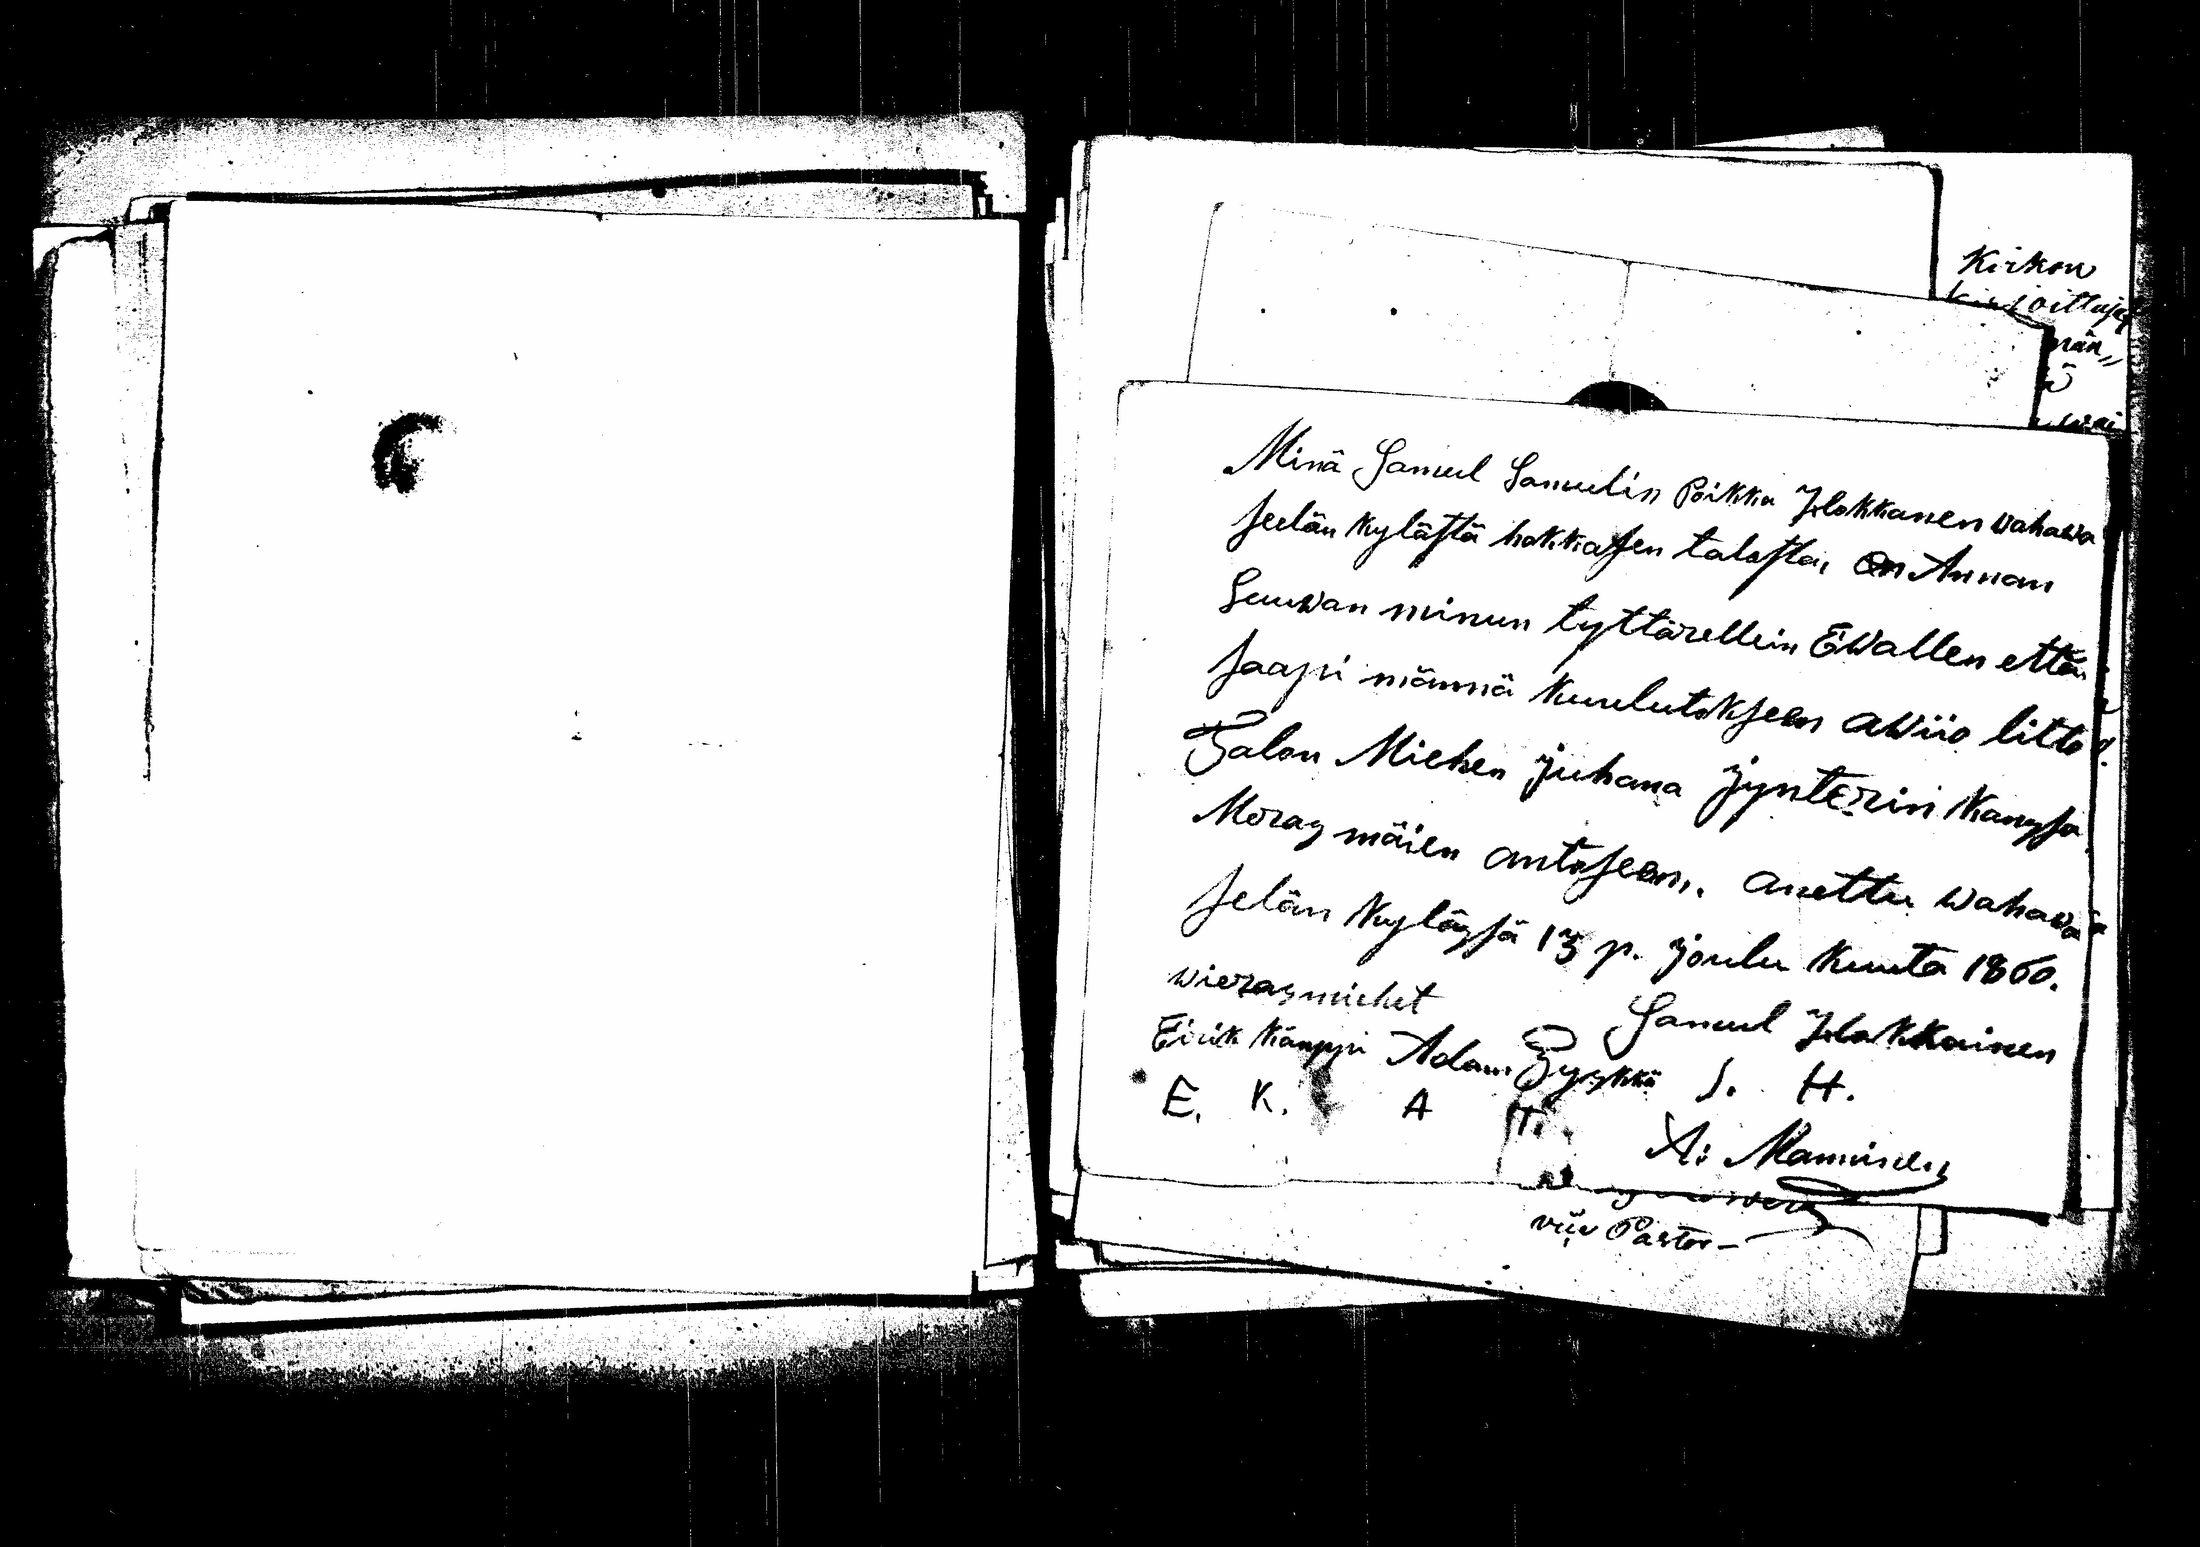 Kirkon
kirjoittaja
män,,
Minä Samuel Samuelin Poikka Hokkanen wahawa
selän kylästä hokkasen talosta, On Annan
Luuwan minun tyttärellein Ewallen että
saapi männä kuulutokseen awiio litto
Talon Miehen juhana jynterin kansa
Morasmäien antoseen. anettu wahawa
selän kyläsä 13 p. joulu kuuta 1860.
wierasmiehet
Samuel Hokkainen
Eirik Käuppi Adam
S. H.
E. K. A T.
A: Manninen
Pastor